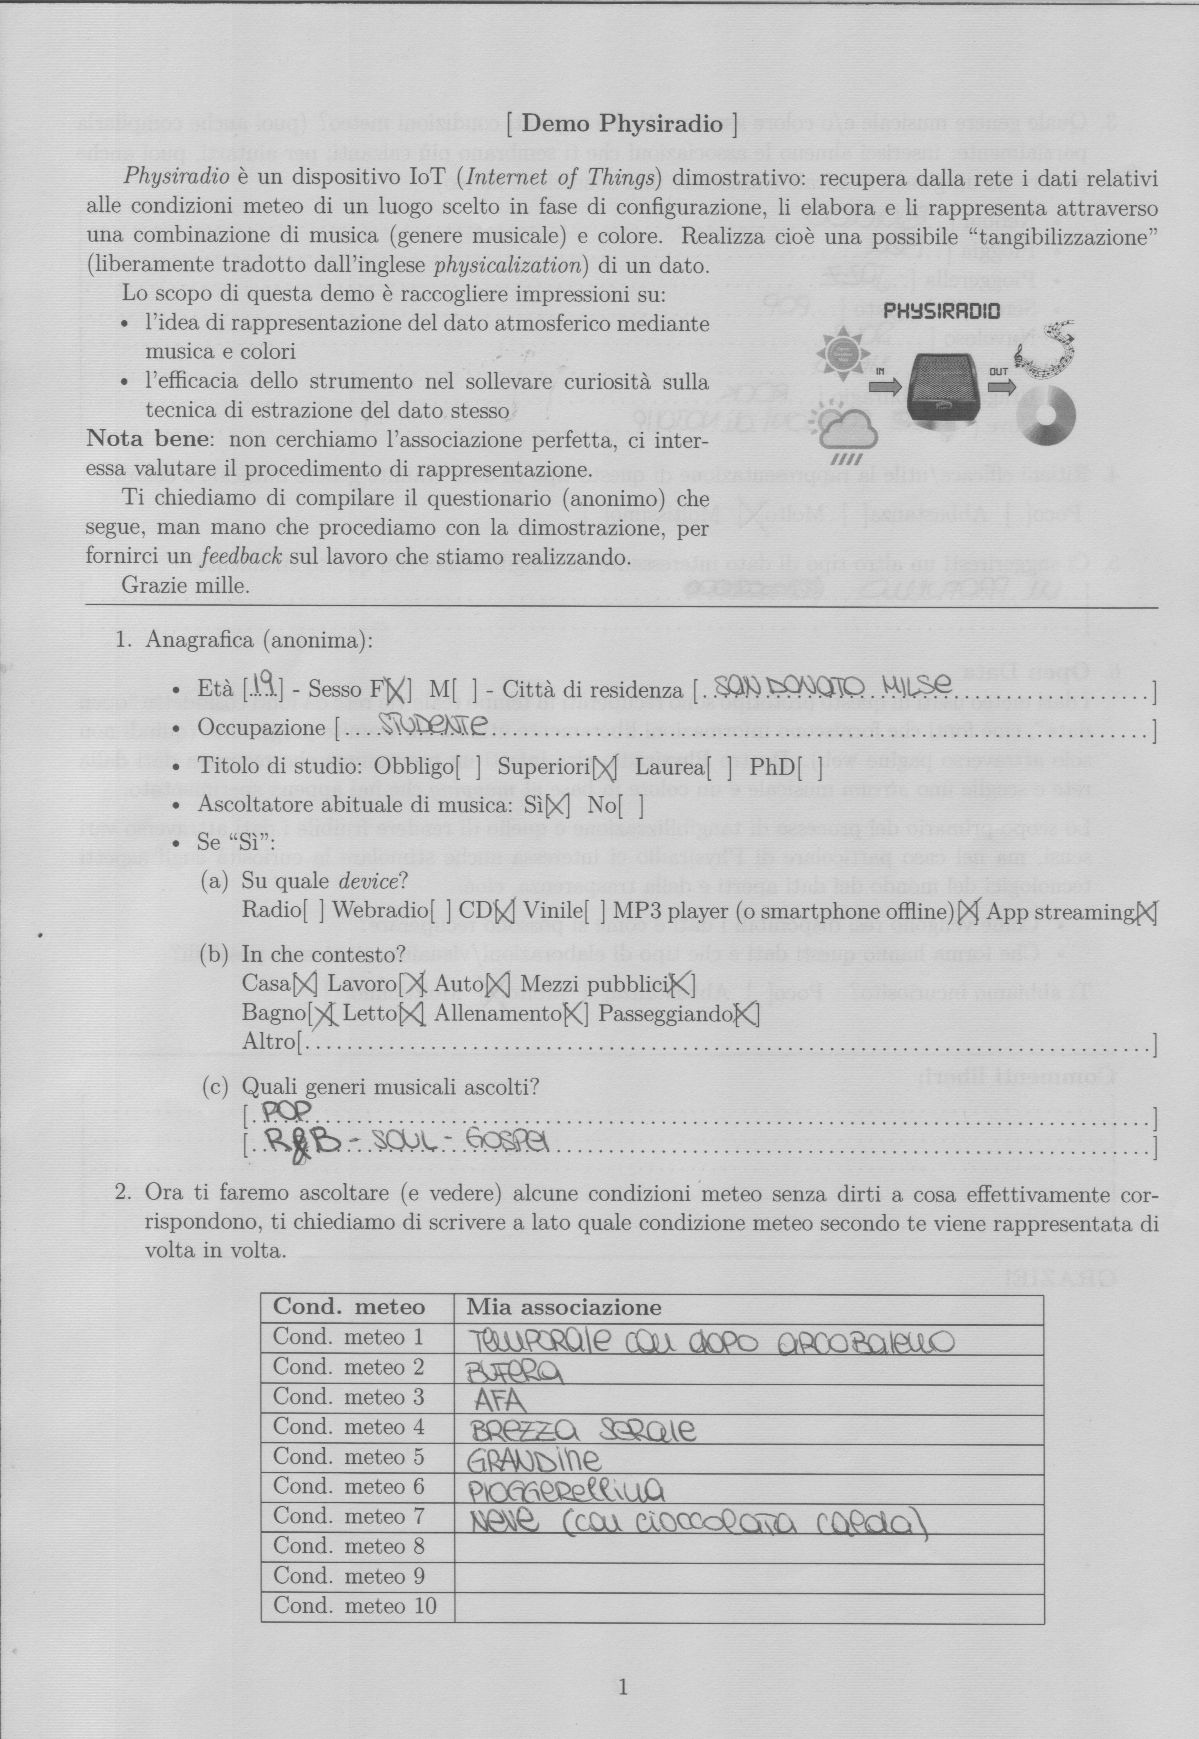 [ Demo Physiradio ]
Physiradio è un dispositivo IoT (Internet of Things) dimostrativo: recupera dalla rete i dati relativi
alle condizioni meteo di un luogo scelto in fase di configurazione, li elabora e li rappresenta attraverso
una combinazione di musica (genere musicale) e colore. Realizza cioè una possibile “tangibilizzazione”
(liberamente tradotto dall'inglese physicalization) di un dato.
Lo scopo di questa demo è raccogliere impressioni su:
• l'idea di rappresentazione del dato atmosferico mediante
musica e colori
• l'efficacia dello strumento nel sollevare curiosità sulla
tecnica di estrazione del dato stesso
Nota bene: non cerchiamo l'associazione perfetta, ci inter-
essa valutare il procedimento di rappresentazione.
Ti chiediamo di compilare il questionario (anonimo) che
segue, man mano che procediamo con la dimostrazione, per
fornirci un feedback sul lavoro che stiamo realizzando.
Grazie mille.
PHYSIRADIO
IN
OUT
1. Anagrafica (anonima):
• Età [19] - Sesso F[X] M[ ] - Città di residenza [SAN DONATO MILSE]
• Occupazione [STUDENTE]
• Titolo di studio: Obbligo[ ] Superiori[X] Laurea[ ] PhD[ ]
• Ascoltatore abituale di musica: Sì[X] No[ ]
• Se “Sì”:
(a) Su quale device?
Radio[ ] Webradio[ ] CD[X] Vinile[ ] MP3 player (o smartphone offline)[X] App streaming[X]
(b) In che contesto?
Casa[X] Lavoro[X] Auto[X] Mezzi pubblici[X]
Bagno[X] Letto[X] Allenamento[X] Passeggiando[X]
Altro[ ]
(c) Quali generi musicali ascolti?
[POP]
[R&B - SOUL - GOSPEL]
2. Ora ti faremo ascoltare (e vedere) alcune condizioni meteo senza dirti a cosa effettivamente cor-
rispondono, ti chiediamo di scrivere a lato quale condizione meteo secondo te viene rappresentata di
volta in volta.
Cond. meteo Mia associazione
Cond. meteo 1 TEMPORALE CON DOPO ARCOBALENO
Cond. meteo 2 BUFERA
Cond. meteo 3 AFA
Cond. meteo 4 BREZZA SERALE
Cond. meteo 5 GRANDINE
Cond. meteo 6 PIOGGERELLINA
Cond. meteo 7 NEVE (CON CIOCCOLATA CALDA)
Cond. meteo 8
Cond. meteo 9
Cond. meteo 10
1